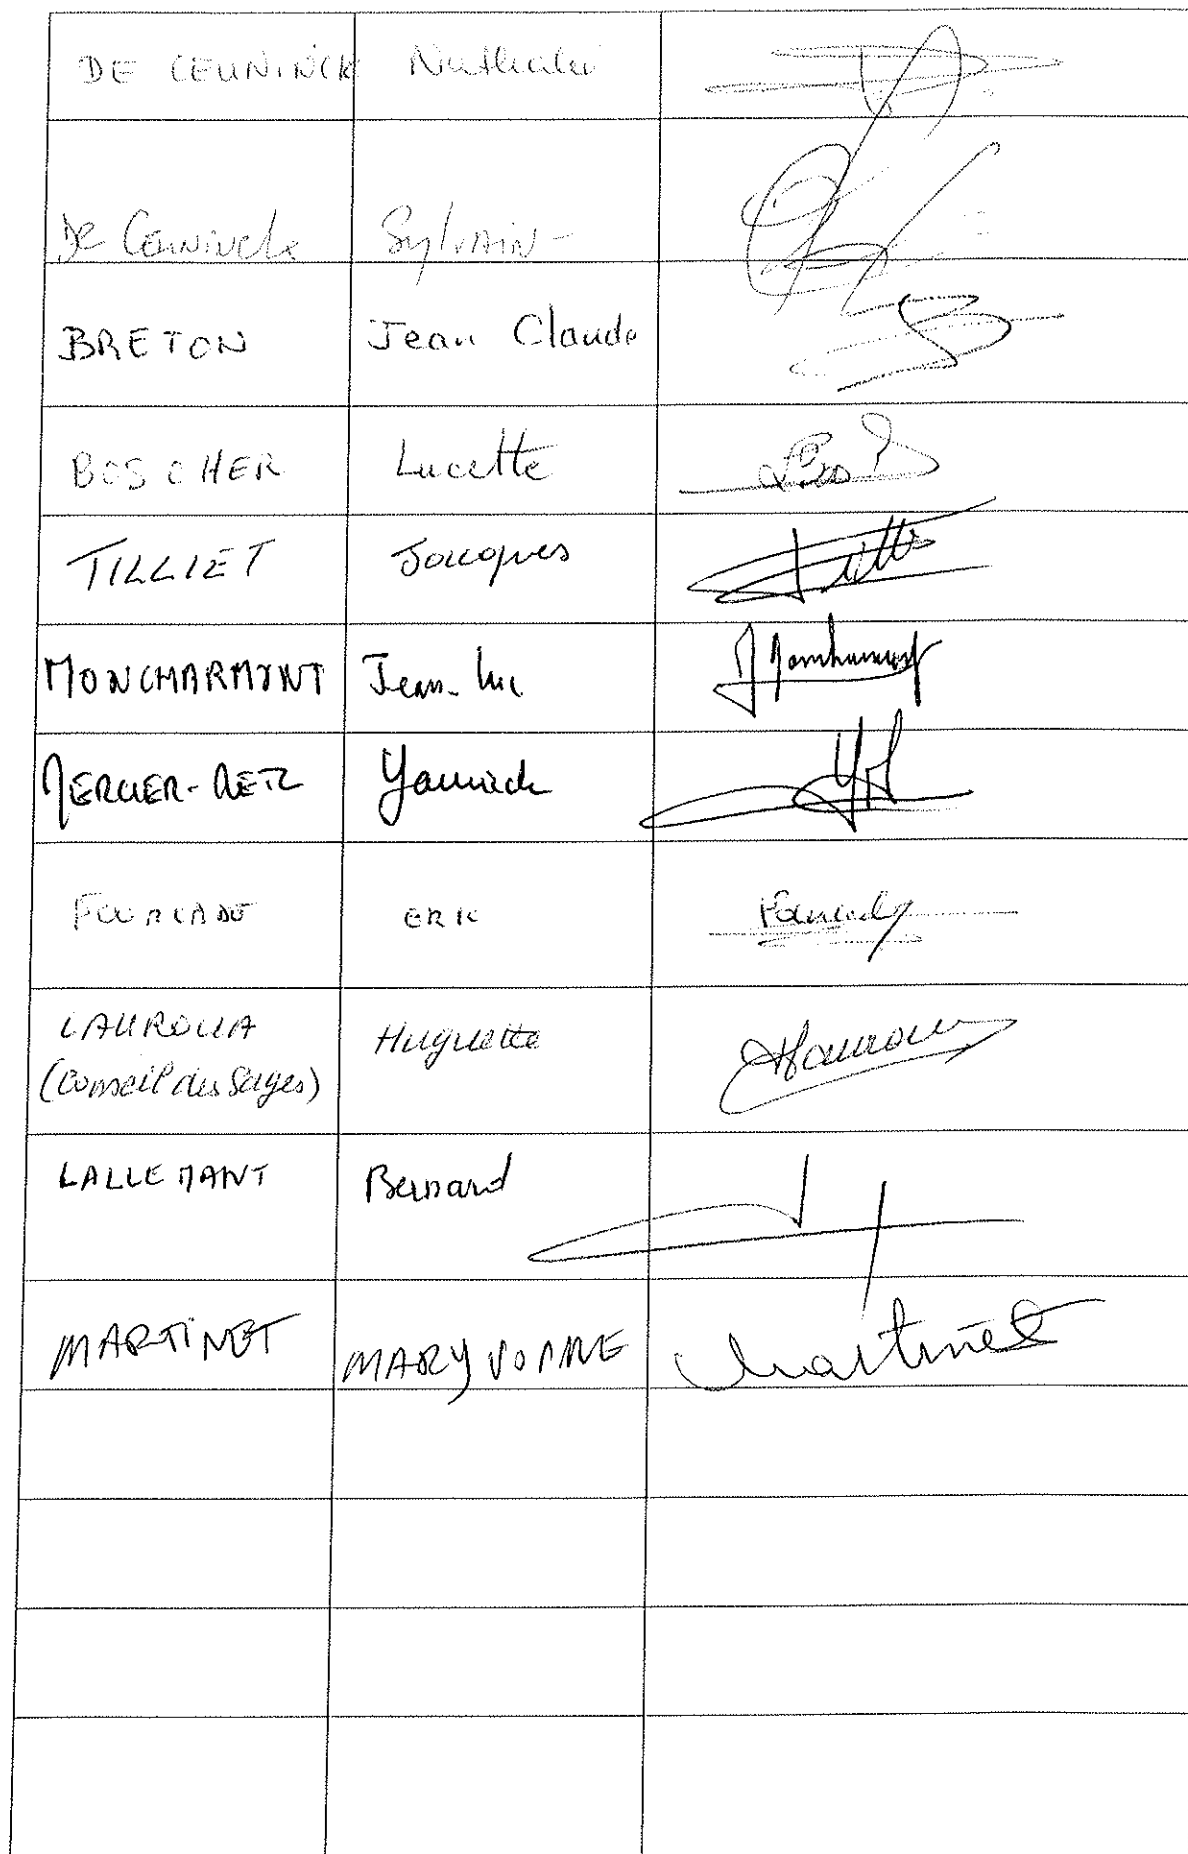 DE CEUNINCK Nathalie
De Ceuninck Sylvain
BRETON Jean Claude
BOSCHER Lucette
TILLIET Jacques
MONCHARMONT Jean-Luc
MERCIER-BETZ Yannick
FOURCADE ERIC
LAUROUA Huguette
(Conseil des Sages)
LALLEMANT Bernard
MARTINET MARYVONNE Martinet